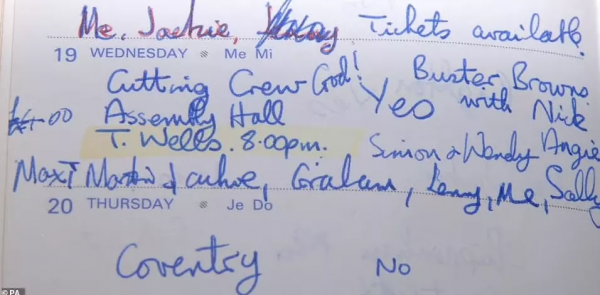 Me, Jackie, Tickets available
19 WEDNESDAY Me Mi
Cutting Crew God! Buster Browns
£4.00 Assembly Hall Yes with Nick
T. Wells. 8.00pm. Simon & Wendy Angie
Martin Jackie, Graham, Lenny, Me, Sally
20 THURSDAY Je Do
Coventry No
© PA